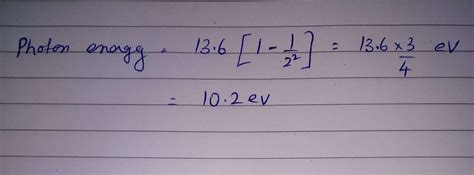 Photon enagy = 13.6 [1 - 1/2²] = 13.6 × 3/4 eV
= 10.2 ev